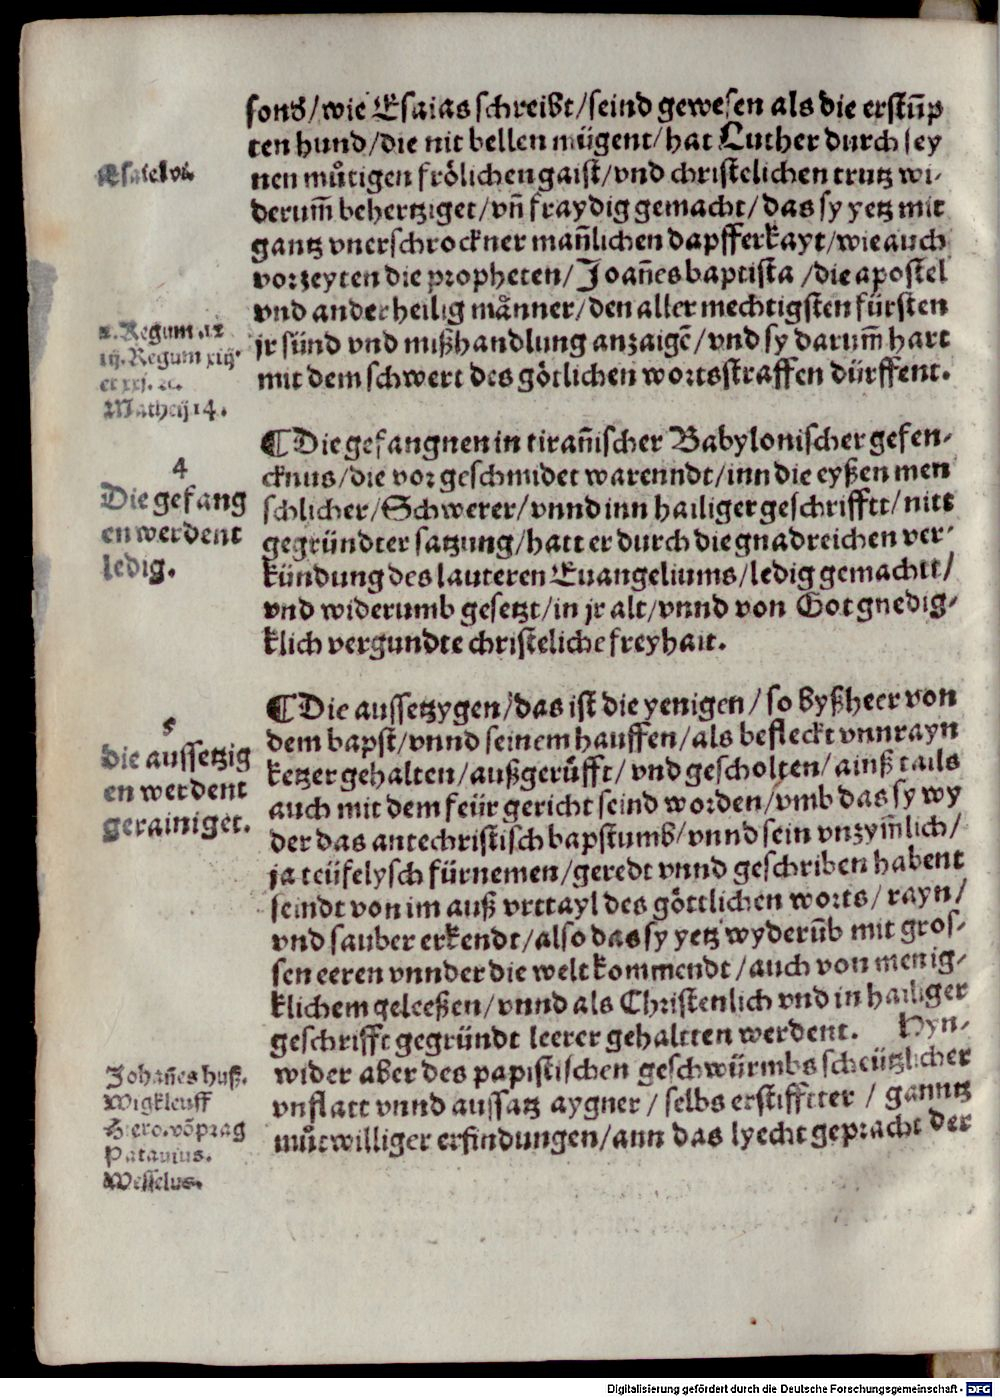 sond/wie Esaias schreibt/seind gewesen als die erstūp
ten hund/die nit bellen mügent/hat Luther durch sey
nen můtigen frölichen gaist/vnd christelichen trutz wi-
derum̄ behertziget/vn̄ fraydig gemacht/das sy yetz mit
gantz vnerschrockner man̄lichen dapfferkayt/wie auch
vorzeyten die propheten/Joan̄es baptista/die apostel
vnd ander heilig maͤnner/den aller mechtigsten fürsten
jr sünd vnd mißhandlung anzaigē/vnd sy darum̄ hart
mit dem schwert des götlichen worts straffen dürffent.
Esaie lvi.
2. Regum 12
iij. Regum xiij.
et xxj. ⁊c.
Mathei 14.
¶ Die gefangnen in tiran̄ischer Babylonischer gefen-
cknus/die vor geschmidet warenndt/inn die eyßen men
schlicher/Schwerer/vnnd inn hailiger geschrifftt/nitt
gegründter satzung/hatt er durch die gnadreichen ver-
kündung des lauteren Euangeliums/ledig gemachtt/
vnd widerumb gesetzt/in jr alt/vnnd von Got gnedig-
klich vergundte christeliche freyhait.
4
Die gefang
en werdent
ledig.
¶ Die aussetzygen/das ist die yenigen/so byßheer von
dem bapst/vnnd seinem hauffen/als befleckt vnnrayn
ketzer gehalten/außgerůfft/vnd gescholten/ainß tails
auch mit dem feür gericht seind worden/vmb das sy wy
der das antechristisch bapstumb/vnnd sein vnzym̄lich/
ja teüfelysch fürnemen/geredt vnnd geschriben habent
seindt von im auß vrttayl des göttlichen worts/rayn/
vnd sauber erkendt/also das sy yetz wyderūb mit gros-
sen eeren vnnder die welt kommendt/auch von menig-
klichem geleeßen/vnnd als Christenlich vnd in hailiger
geschrifft gegründt leerer gehaltten werdent. Hyn-
wider aber des papistischen geschwürmbs scheützlicher
vnflatt vnnd aussatz aygner/selbs erstifftter/ganntz
můtwilliger erfindungen/ann das lyecht gepracht der
5
die aussetzig
en werdent
gerainiget.
Johan̄es huß.
Wigkleuff
Hiero. vō prag
Patauius.
Wesselus.
Digitalisierung gefördert durch die Deutsche Forschungsgemeinschaft - DFG